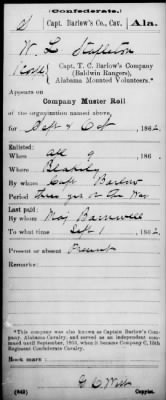 (Confederate.)
S Capt. Barlow's Co., Cav., Ala.
W. L. Stapleton
Capt. T. C. Barlow's Company
(Baldwin Rangers),
Alabama Mounted Volunteers.*
Appears on
Company Muster Roll
of the organization named above,
for Sept & Oct, 1862.
Enlisted:
When , 186 .
Where Blakely
By whom Capt Barlow
Period three yrs or the War
Last paid:
By whom Maj Barnwell
To what time Sept 1, 1862.
Present or absent Present
Remarks:
*This company was also known as Captain Barlow's Company, Alabama Cavalry, and served as an independent command until September, 1863, when it became Company C, 15th Regiment Confederate Cavalry.
Book mark:
(642) Copyist.